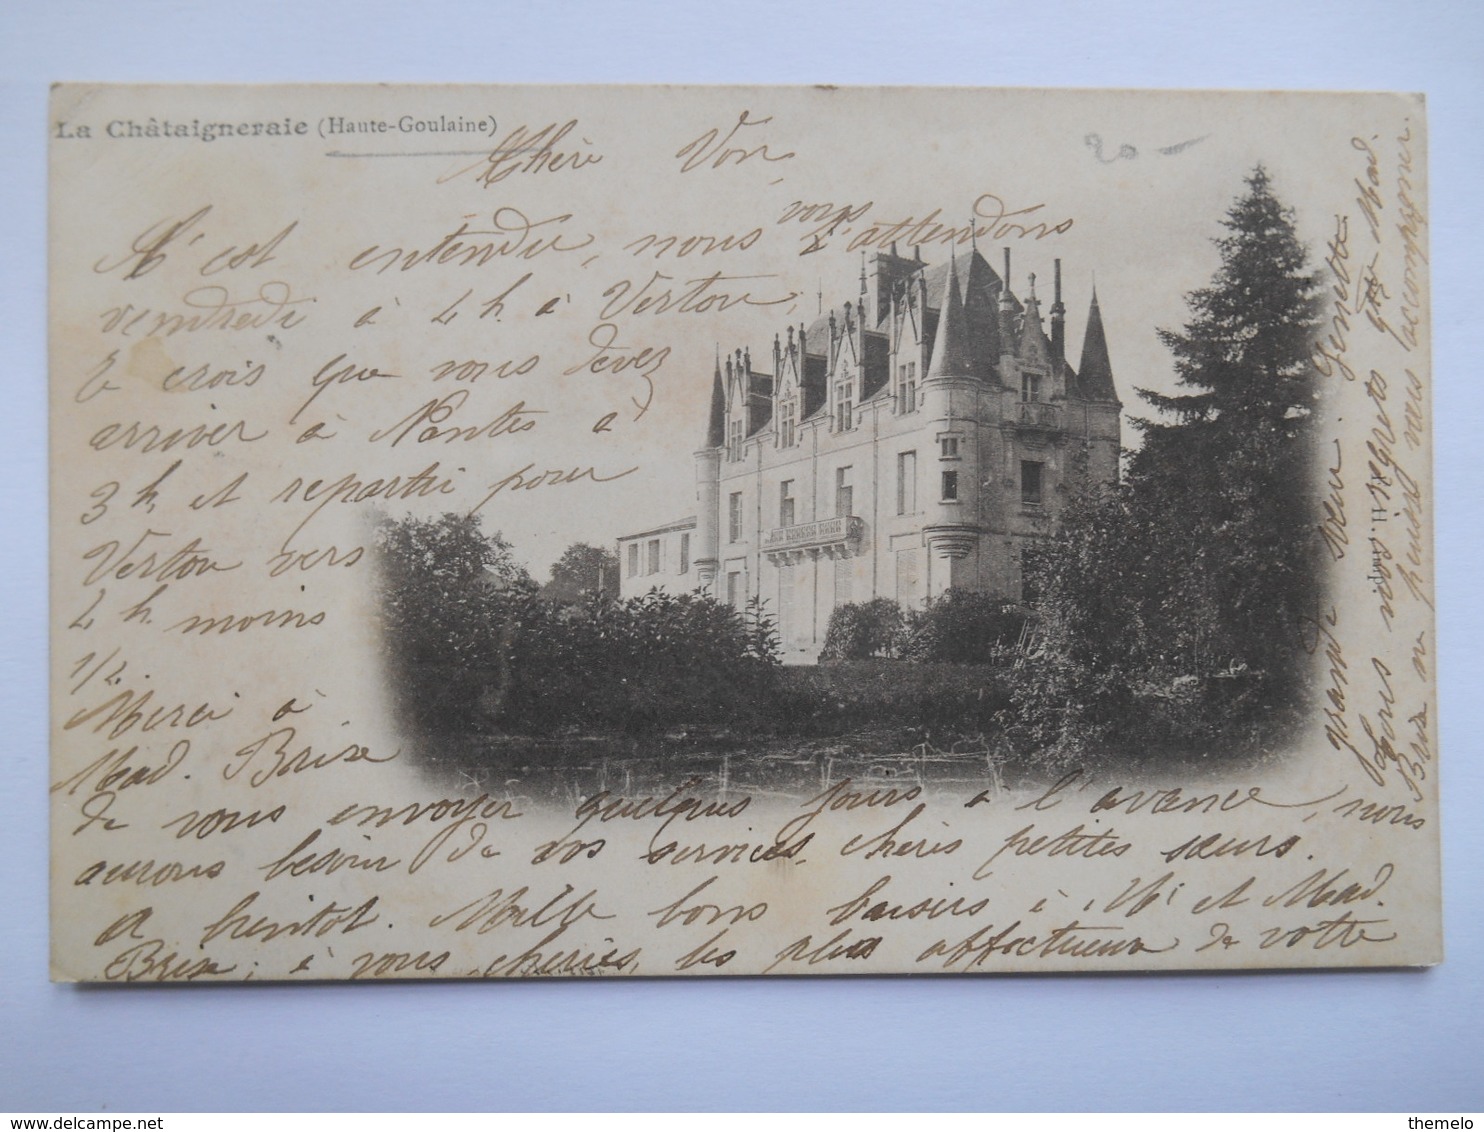 La Châtaigneraie (Haute-Goulaine)
20 -
Chère Von,
C'est entendu, nous vous attendons
vendredi à 4 h. à Vertou;
Je crois que vous devez
arriver à Nantes à
3 h, et repartir pour
Vertou vers
4 h. moins
1/2.
Merci à
Mad. Brise
de vous envoyer quelques jours à l'avance, nous
aurons besoin de vos services, chères petites sœurs.
A bientôt. Mille bons baisers à Mr et Mad.
Brise; à vous, chéries, les plus affectueux de votre
grande sœur. Ginette
Tous nos regrets que Mad.
Brise ne puisse vous accompagner.
delcampe.net
themelo